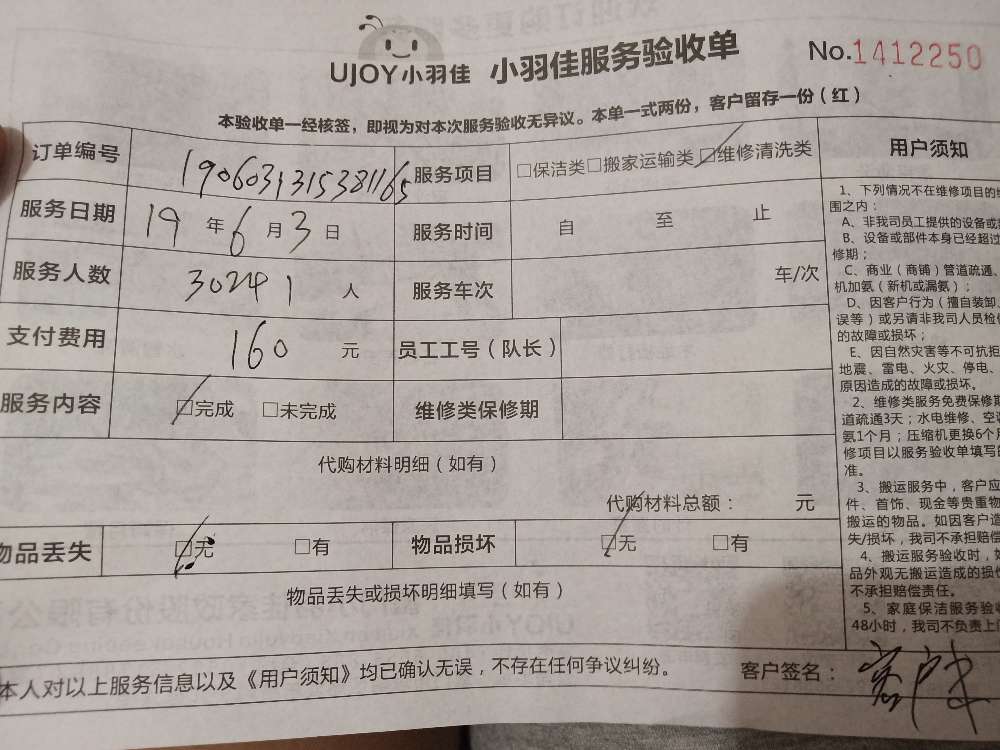 UJOY小羽佳 小羽佳服务验收单 No.1412250
本验收单一经核签，即视为对本次服务验收无异议。本单一式两份，客户留存一份（红）
订单编号 1906031315381165 服务项目 □保洁类□搬家运输类☑维修清洗类
服务日期 19年6月3日 服务时间 自 至 止
服务人数 30241人 服务车次 车/次
支付费用 160元 员工工号（队长）
服务内容 ☑完成 □未完成 维修类保修期
代购材料明细（如有）
代购材料总额： 元
物品丢失 ☑无 □有 物品损坏 ☑无 □有
物品丢失或损坏明细填写（如有）
本人对以上服务信息以及《用户须知》均已确认无误，不存在任何争议纠纷。 客户签名：
用户须知
1、下列情况不在维修项目的
围之内：
A、非我司员工提供的设备或
B、设备或部件本身已经超过
修期；
C、商业（商铺）管道疏通、
机加氨（新机或漏氨）；
D、因客户行为（擅自装卸
误等）或另请非我司人员检
的故障或损坏；
E、因自然灾害等不可抗拒
地震、雷电、火灾、停电、
原因造成的故障或损坏。
2、维修类服务免费保修期
道疏通3天；水电维修、空
氨1个月；压缩机更换6个月
修项目以服务验收单填写的
准。
3、搬运服务中，客户应
件、首饰、现金等贵重物
搬运的物品。如因客户造
失/损坏，我司不承担赔偿
4、搬运服务验收时，如
品外观无搬运造成的损
不承担赔偿责任。
5、家庭保洁服务验收
48小时，我司不负责上